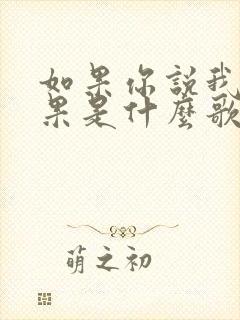 如果你説我
果是什麼歌
萌之初